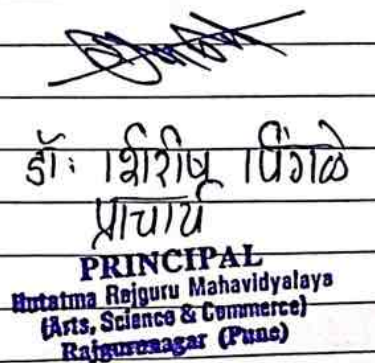 डॉ: शिरीष पिंगळे
प्राचार्य
PRINCIPAL
Hutatma Rajguru Mahavidyalaya
(Arts, Science & Commerce)
Rajgurunagar (Pune)